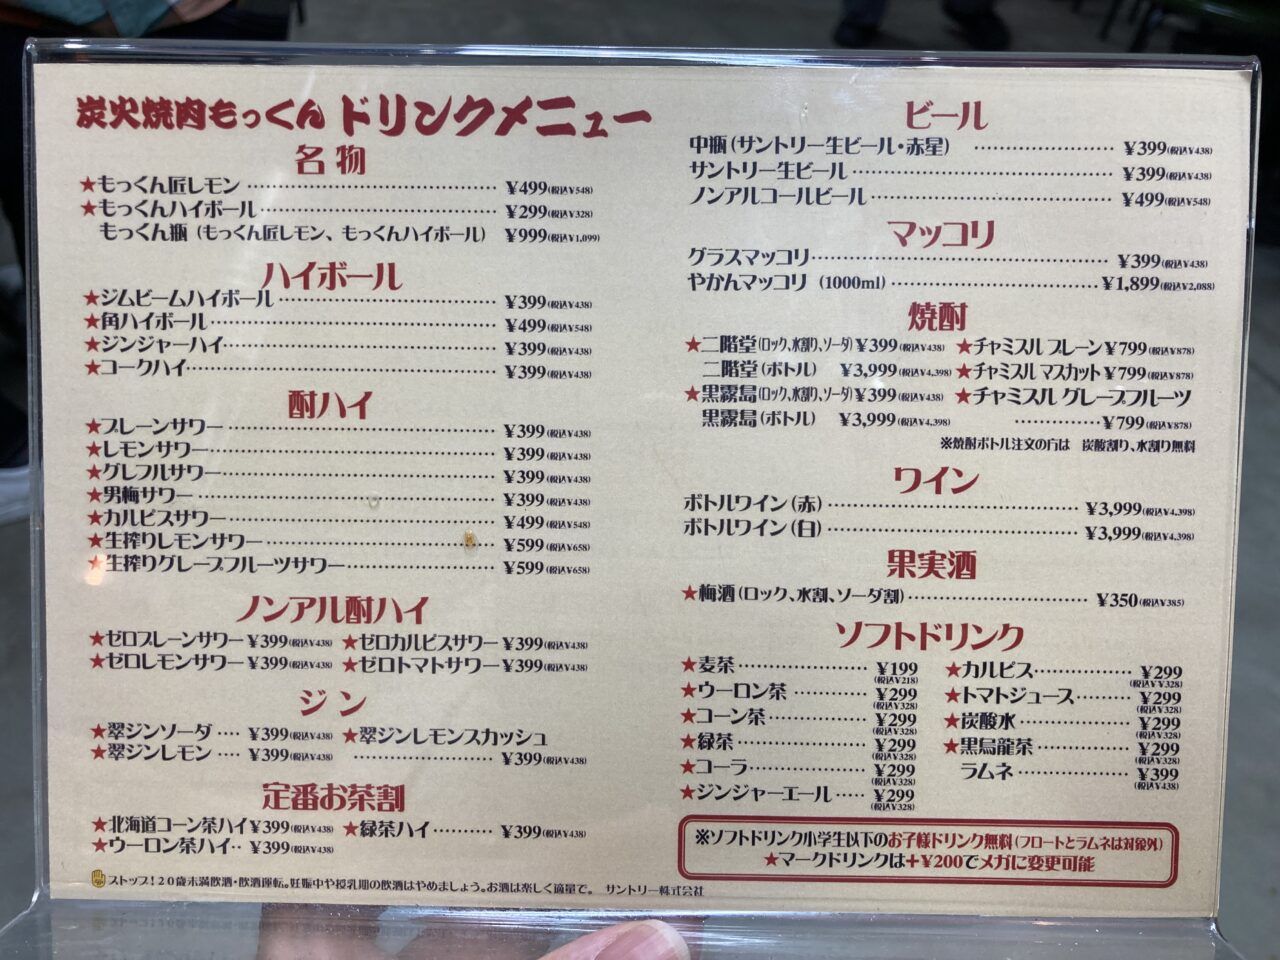 炭火焼肉もっくん ドリンクメニュー
名物
★もっくん匠レモン ¥499(税込¥548)
★もっくんハイボール ¥299(税込¥328)
もっくん瓶（もっくん匠レモン、もっくんハイボール） ¥999(税込¥1,099)
ハイボール
★ジムビームハイボール ¥399(税込¥438)
★角ハイボール ¥499(税込¥548)
★ジンジャーハイ ¥399(税込¥438)
★コークハイ ¥399(税込¥438)
酎ハイ
★プレーンサワー ¥399(税込¥438)
★レモンサワー ¥399(税込¥438)
★グレフルサワー ¥399(税込¥438)
★男梅サワー ¥399(税込¥438)
★カルピスサワー ¥499(税込¥548)
★生搾りレモンサワー ¥599(税込¥658)
★生搾りグレープフルーツサワー ¥599(税込¥658)
ノンアル酎ハイ
★ゼロプレーンサワー ¥399(税込¥438) ★ゼロカルピスサワー ¥399(税込¥438)
★ゼロレモンサワー ¥399(税込¥438) ★ゼロトマトサワー ¥399(税込¥438)
ジン
★翠ジンソーダ ¥399(税込¥438) ★翠ジンレモンスカッシュ
★翠ジンレモン ¥399(税込¥438) ¥399(税込¥438)
定番お茶割
★北海道コーン茶ハイ ¥399(税込¥438) ★緑茶ハイ ¥399(税込¥438)
★ウーロン茶ハイ ¥399(税込¥438)
ストップ！20歳未満飲酒・飲酒運転。妊娠中や授乳期の飲酒はやめましょう。お酒は楽しく適量で。 サントリー株式会社
ビール
中瓶（サントリー生ビール・赤星） ¥399(税込¥438)
サントリー生ビール ¥399(税込¥438)
ノンアルコールビール ¥499(税込¥548)
マッコリ
グラスマッコリ ¥399(税込¥438)
やかんマッコリ (1000ml) ¥1,899(税込¥2,088)
焼酎
★二階堂(ロック、水割り、ソーダ) ¥399(税込¥438) ★チャミスル プレーン ¥799(税込¥878)
二階堂（ボトル） ¥3,999(税込¥4,398) ★チャミスル マスカット ¥799(税込¥878)
★黒霧島(ロック、水割り、ソーダ) ¥399(税込¥438) ★チャミスル グレープフルーツ
黒霧島（ボトル） ¥3,999(税込¥4,398) ¥799(税込¥878)
※焼酎ボトル注文の方は 炭酸割り、水割り無料
ワイン
ボトルワイン（赤） ¥3,999(税込¥4,398)
ボトルワイン（白） ¥3,999(税込¥4,398)
果実酒
★梅酒（ロック、水割、ソーダ割） ¥350(税込¥385)
ソフトドリンク
★麦茶 ¥199(税込¥218) ★カルピス ¥299(税込¥328)
★ウーロン茶 ¥299(税込¥328) ★トマトジュース ¥299(税込¥328)
★コーン茶 ¥299(税込¥328) ★炭酸水 ¥299(税込¥328)
★緑茶 ¥299(税込¥328) ★黒烏龍茶 ¥299(税込¥328)
★コーラ ¥299(税込¥328) ラムネ ¥399(税込¥438)
★ジンジャーエール ¥299(税込¥328)
※ソフトドリンク小学生以下のお子様ドリンク無料（フロートとラムネは対象外）
★マークドリンクは+¥200でメガに変更可能